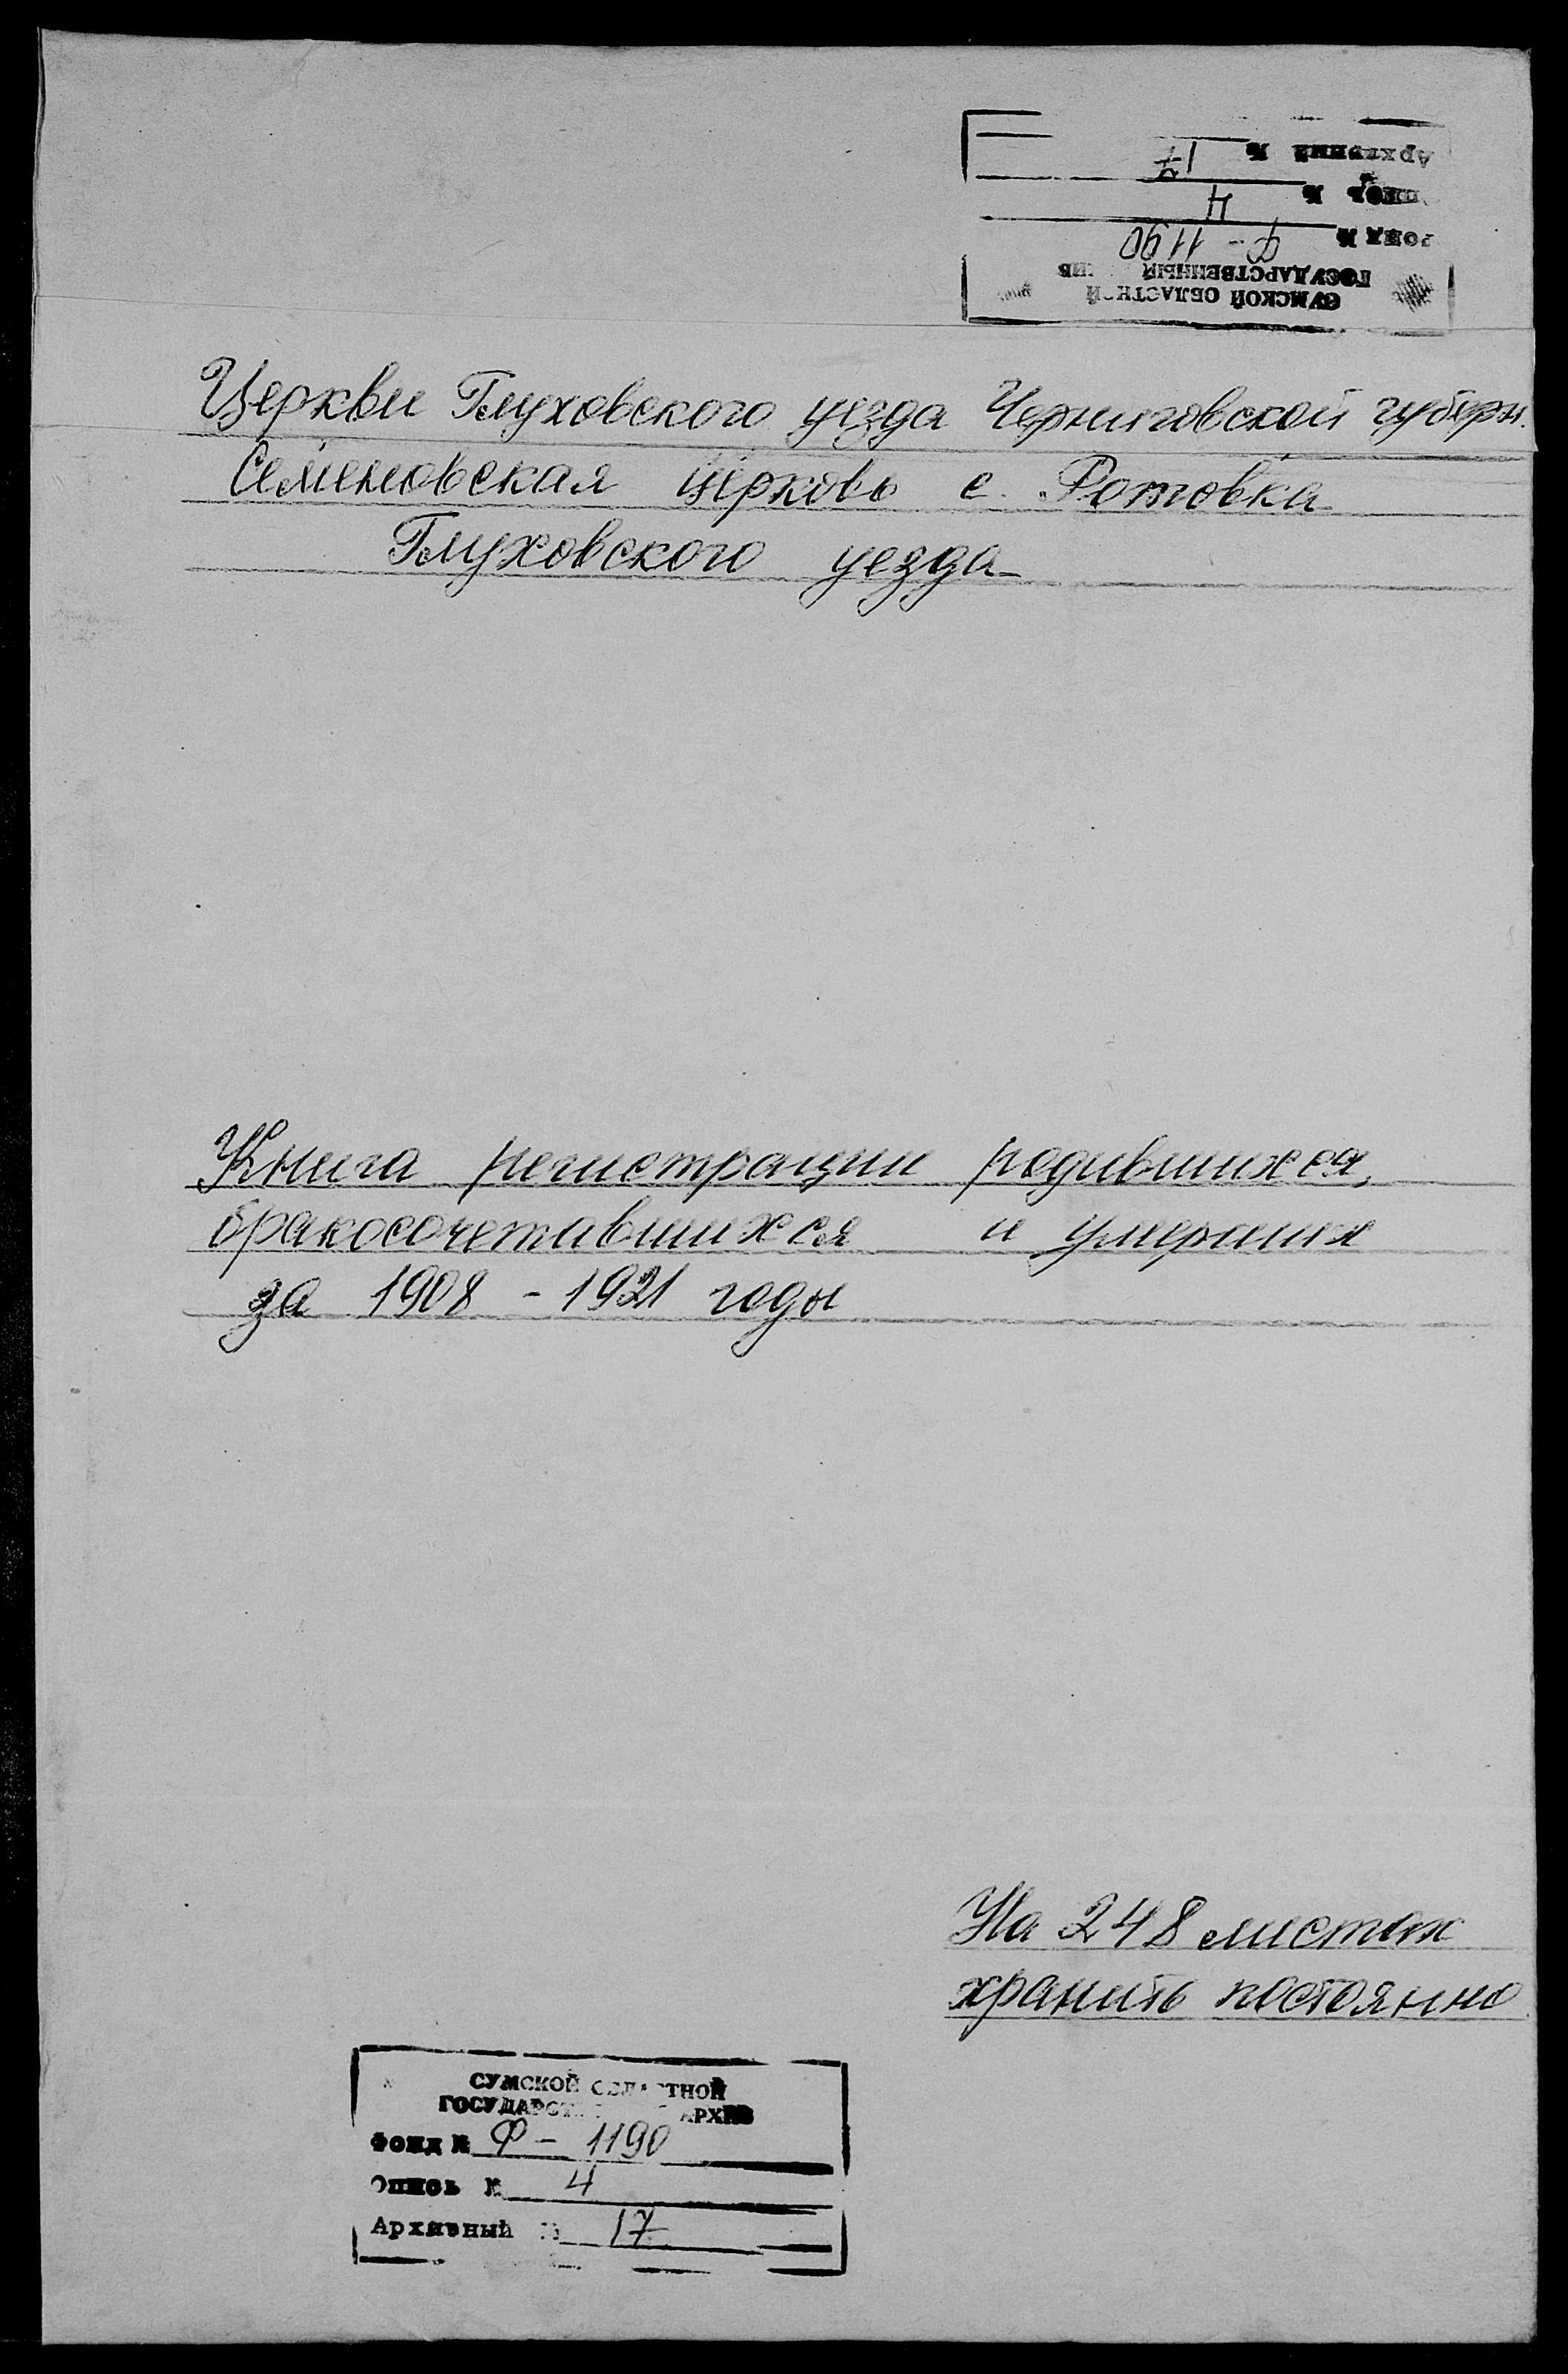 СУМСКОЙ ОБЛАСТНОЙ
ГОСУДАРСТВЕННЫЙ
Фонд № Ф - 1190
Опись № 4
Архивный № 17
Церкви Глуховского уезда Черниговской губерн.
Семеновская церковь с. Ротовка
Глуховского уезда
Книга регистрации родившихся,
бракосочетавшихся и умерших
за 1908 - 1921 годы
На 248 листах
хранить постоянно
СУМСКОЙ ОБЛАСТНОЙ
ГОСУДАРСТ АРХИВ
Фонд № Ф - 1190
Опись № 4
Архивный № 17